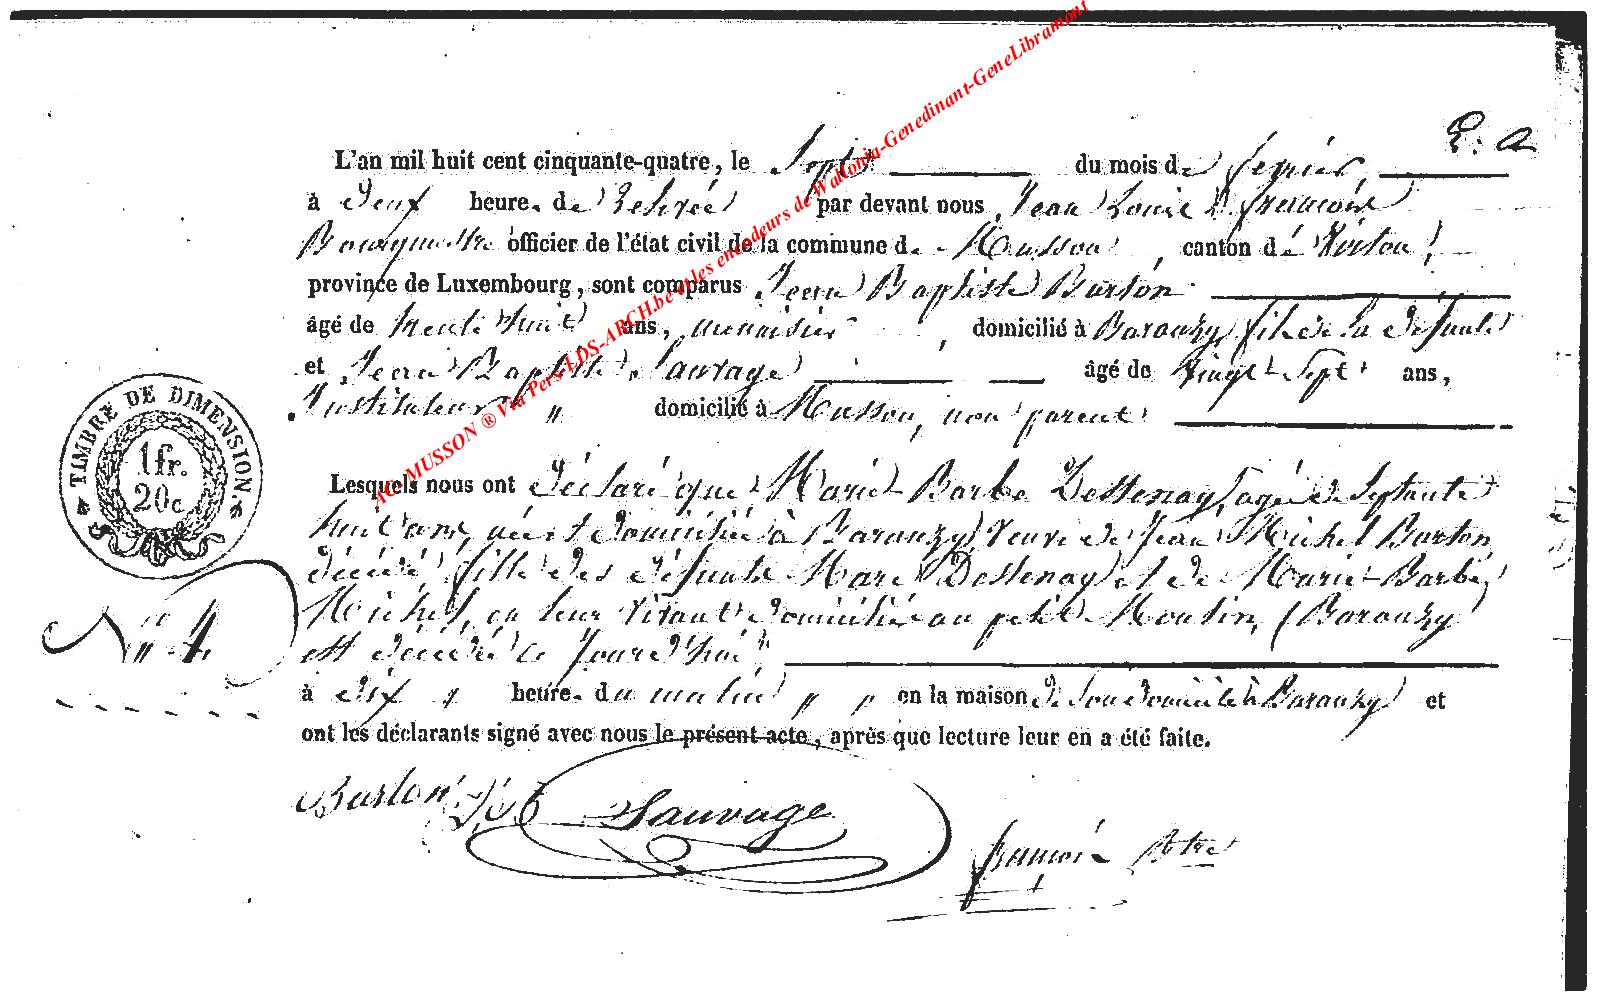 P: A
L'an mil huit cent cinquante-quatre, le Sept du mois de fevrier
à Deux heure. de relevée par devant nous Jean Louis françois
Bourgmestre officier de l'état civil de la commune de Musson, canton de Virton,
province de Luxembourg, sont comparus Jean Baptiste Burton
âgé de trente huit ans, menuisier, domicilié à Baranzy, fils de la défunte
et Jean Baptiste Sauvage âgé de Vingt Sept ans,
Instituteur " domicilié à Musson, non parent
Lesquels nous ont Déclaré que Marie Barbe Dessenay, agée de Septante
huit ans, née et domiciliée à Baranzy, Veuve de Jean Michel Burton
décédé, fille des défunts Marc Dessenay et de Marie-Barbe
Michel, en leur vivant domiciliés au petit Moulin, (Baranzy
est décédée ce jourd'hui,
à Dix " heure. du matin " " en la maison de Son domicile à Baranzy et
ont les déclarants signé avec nous le présent acte, après que lecture leur en a été faite.
TIMBRE DE DIMENSION.
1 fr.
20c
N° 4
Burton J.B Sauvage
françois Btre
AC- MUSSON ® Via Pers-LDS-ARCH.be et les encodeurs de Wallonia-Genedinant-GeneLibramont